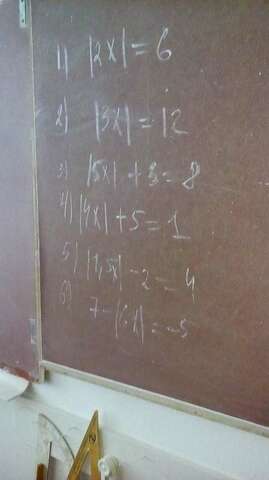 1) |2x| = 6
2) |3x| = 12
3) |5x| + 3 = 8
4) |4x| + 5 = 1
5) |1,5x| - 2 = 4
6) 7 - |6x| = -5